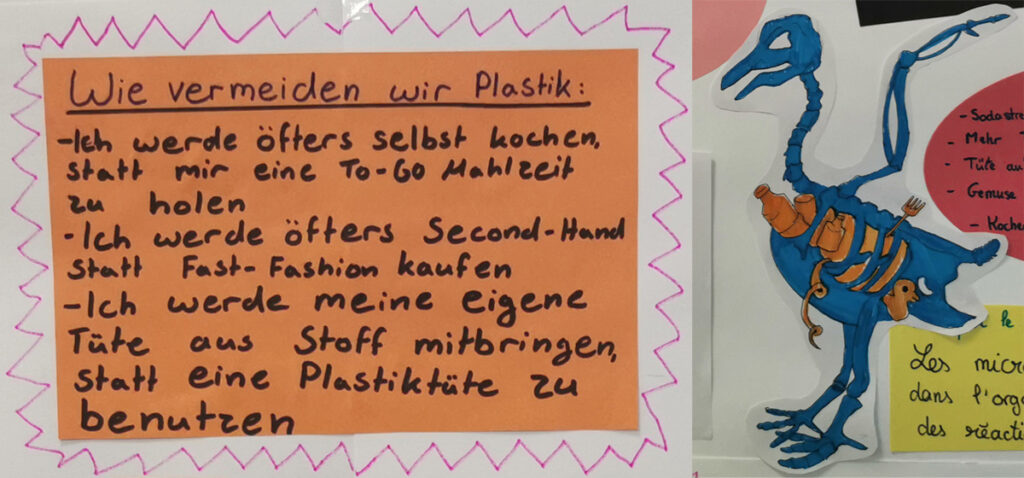 Wie vermeiden wir Plastik:
-Ich werde öfters selbst kochen,
statt mir eine To-Go Mahlzeit
zu holen
-Ich werde öfters Second-Hand
statt Fast-Fashion kaufen
-Ich werde meine eigene
Tüte aus Stoff mitbringen,
statt eine Plastiktüte zu
benutzen
- Sodastre
- Mehr
- Tüte au
- Gemüse
- Koche
le
Les micr
dans l'orga
des réacti